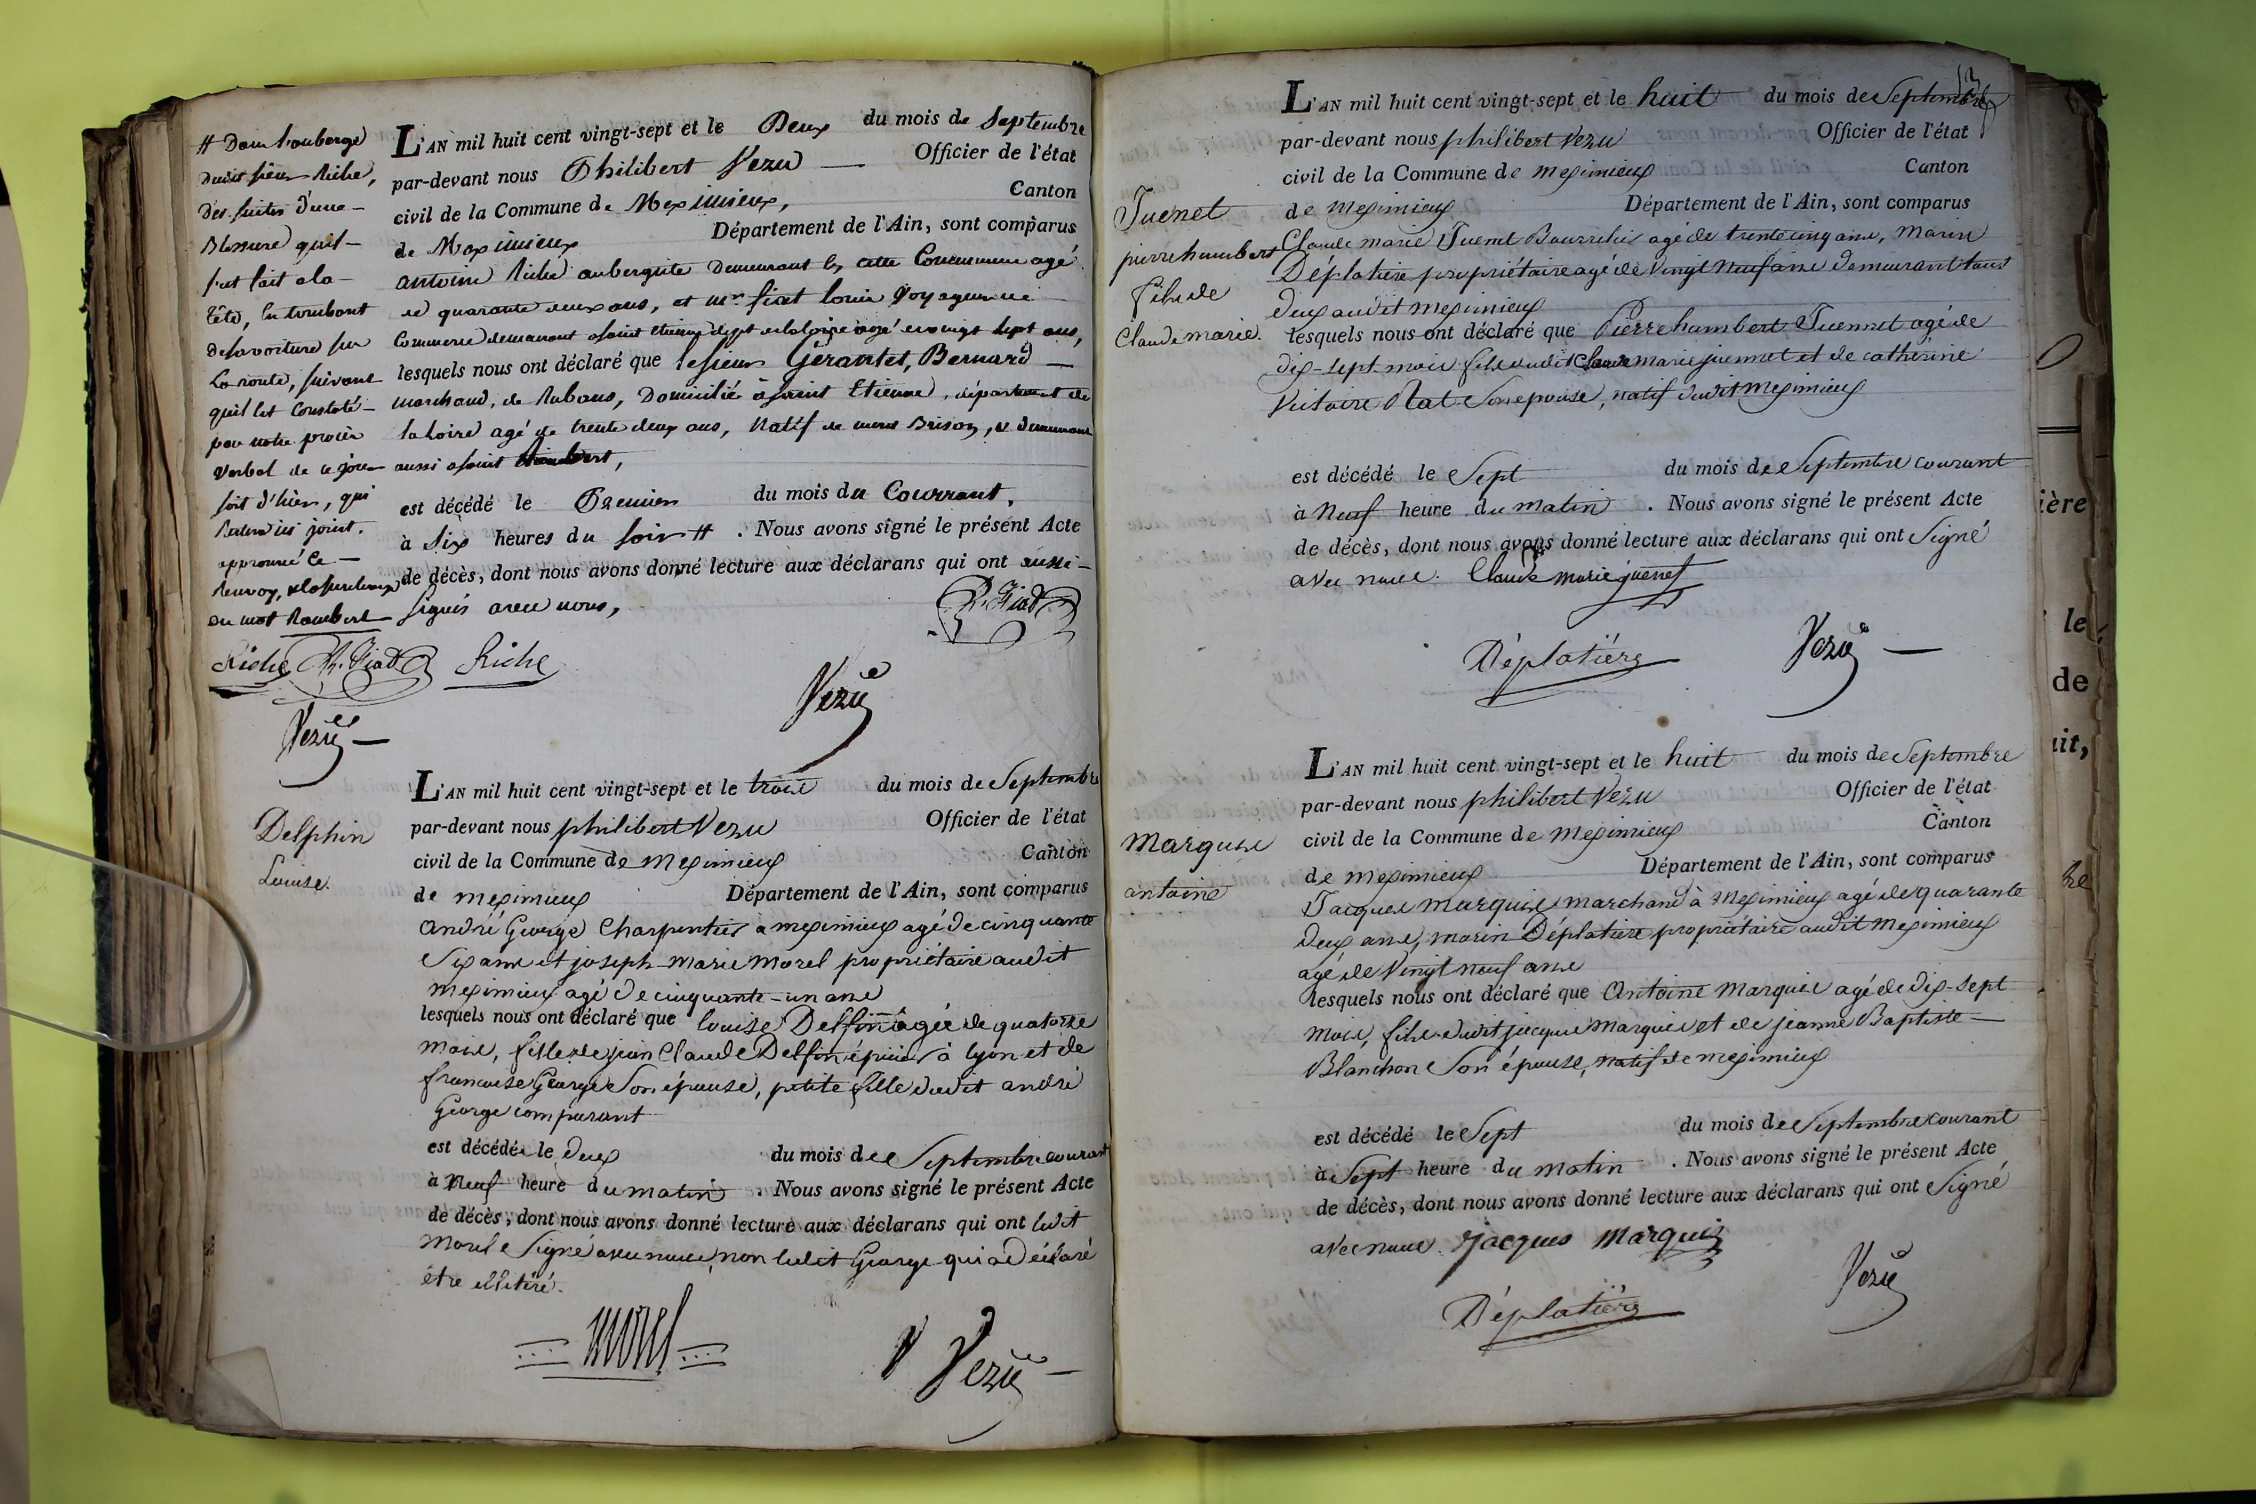 # Dans l'auberge
dudit sieur Riche,
des suites d'une
Blessure qu'il
s'est fait a la
Tête, en tombant
de sa voiture sur
La route, suivant
qu'il est Constaté
par notre procès
verbal de ce jour
soit d'hier, qui
restera ici joint.
approuvé Ce
Renvoy, et la surcharge
du mot Rambert
Riche R. Fiat
Vezu
L'AN mil huit cent vingt-sept et le Deux du mois de Septembre
par-devant nous Philibert Vezu Officier de l'état
civil de la Commune de Meximieux, Canton
de Meximieux Département de l'Ain, sont comparus
antoine Riche aubergiste Demeurant en cette Commune agé
de quarante deux ans, et mr fiat louis Voyageur de
Commerce demeurant a saint etienne dept de la loire agé de vingt sept ans,
lesquels nous ont déclaré que le sieur Gérantet, Bernard
marchand, de Rubans, Domicilié à saint Etienne, département de
la loire agé de trente deux ans, Natif de, et demeurant
aussi a saint Rambert,
est décédé le Premier du mois du Courrant,
à Six heures du soir # . Nous avons signé le présent Acte
de décès, dont nous avons donné lecture aux déclarans qui ont aussi
signés avec nous,
R. Fiat
Riche
Vezu
Delphin
Louise.
L'AN mil huit cent vingt-sept et le trois du mois de Septembre
par-devant nous philibert Vezu Officier de l'état
civil de la Commune de meximieux Canton
de meximieux Département de l'Ain, sont comparus
andré George Charpentier a meximieux agé de cinquante
Six ans et joseph marie Morel propriétaire audit
meximieux agé de cinquante-un ans
lesquels nous ont déclaré que louise Delfin agée de quatorze
mois, fille de jean Claude Delfin épicier à lyon et de
francoise George Son épouse, petite fille dudit andré
George comparant
est décédée le deux du mois de Septembre courant
à Neuf heure du matin . Nous avons signé le présent Acte
de décès, dont nous avons donné lecture aux déclarans qui ont ledit
Morel Signé avec nous, non ledit George qui a Déclaré
être illitéré.
morel
Vezu
Juenet
pierre humbert
fils de
Claude marie.
L'AN mil huit cent vingt-sept et le huit du mois de Septembre
par-devant nous philibert Vezu Officier de l'état
civil de la Commune de meximieux Canton
de meximieux Département de l'Ain, sont comparus
Claude marie Juenet Bourrelier agé de trente cinq ans, Marin
Déplatière propriétaire agé de Vingt Neuf ans demeurant tous
deux audit meximieux
lesquels nous ont déclaré que Pierre humbert Juennet agé de
dix-sept mois fils dudit Claude marie juennet et de cathérine
Victoire Rat Son épouse, natif dudit Meximieux
est décédé le Sept du mois de Septembre courant
à Neuf heure du matin . Nous avons signé le présent Acte
de décès, dont nous avons donné lecture aux déclarans qui ont Signé
avec nous. Claude marie juenet
Déplatière
Vezu
Marquis
antoine
L'AN mil huit cent vingt-sept et le huit du mois de Septembre
par-devant nous philibert Vezu Officier de l'état
civil de la Commune de meximieux Canton
de meximieux Département de l'Ain, sont comparus
Jacques Marquis marchand à Meximieux agé de quarante
deux ans, marin Déplatière propriétaire audit Meximieux
agé de Vingt neuf ans
lesquels nous ont déclaré que Antoine Marquis agé de dix-sept
mois, fils dudit jacques Marquis et de jeanne Baptiste
Blanchon Son épouse, natif de meximieux
est décédé le Sept du mois de Septembre courant
à Sept heure du matin . Nous avons signé le présent Acte
de décès, dont nous avons donné lecture aux déclarans qui ont Signé
avec nous. Jacques Marquis
Déplatière
Vezu
ière
le
de
it,